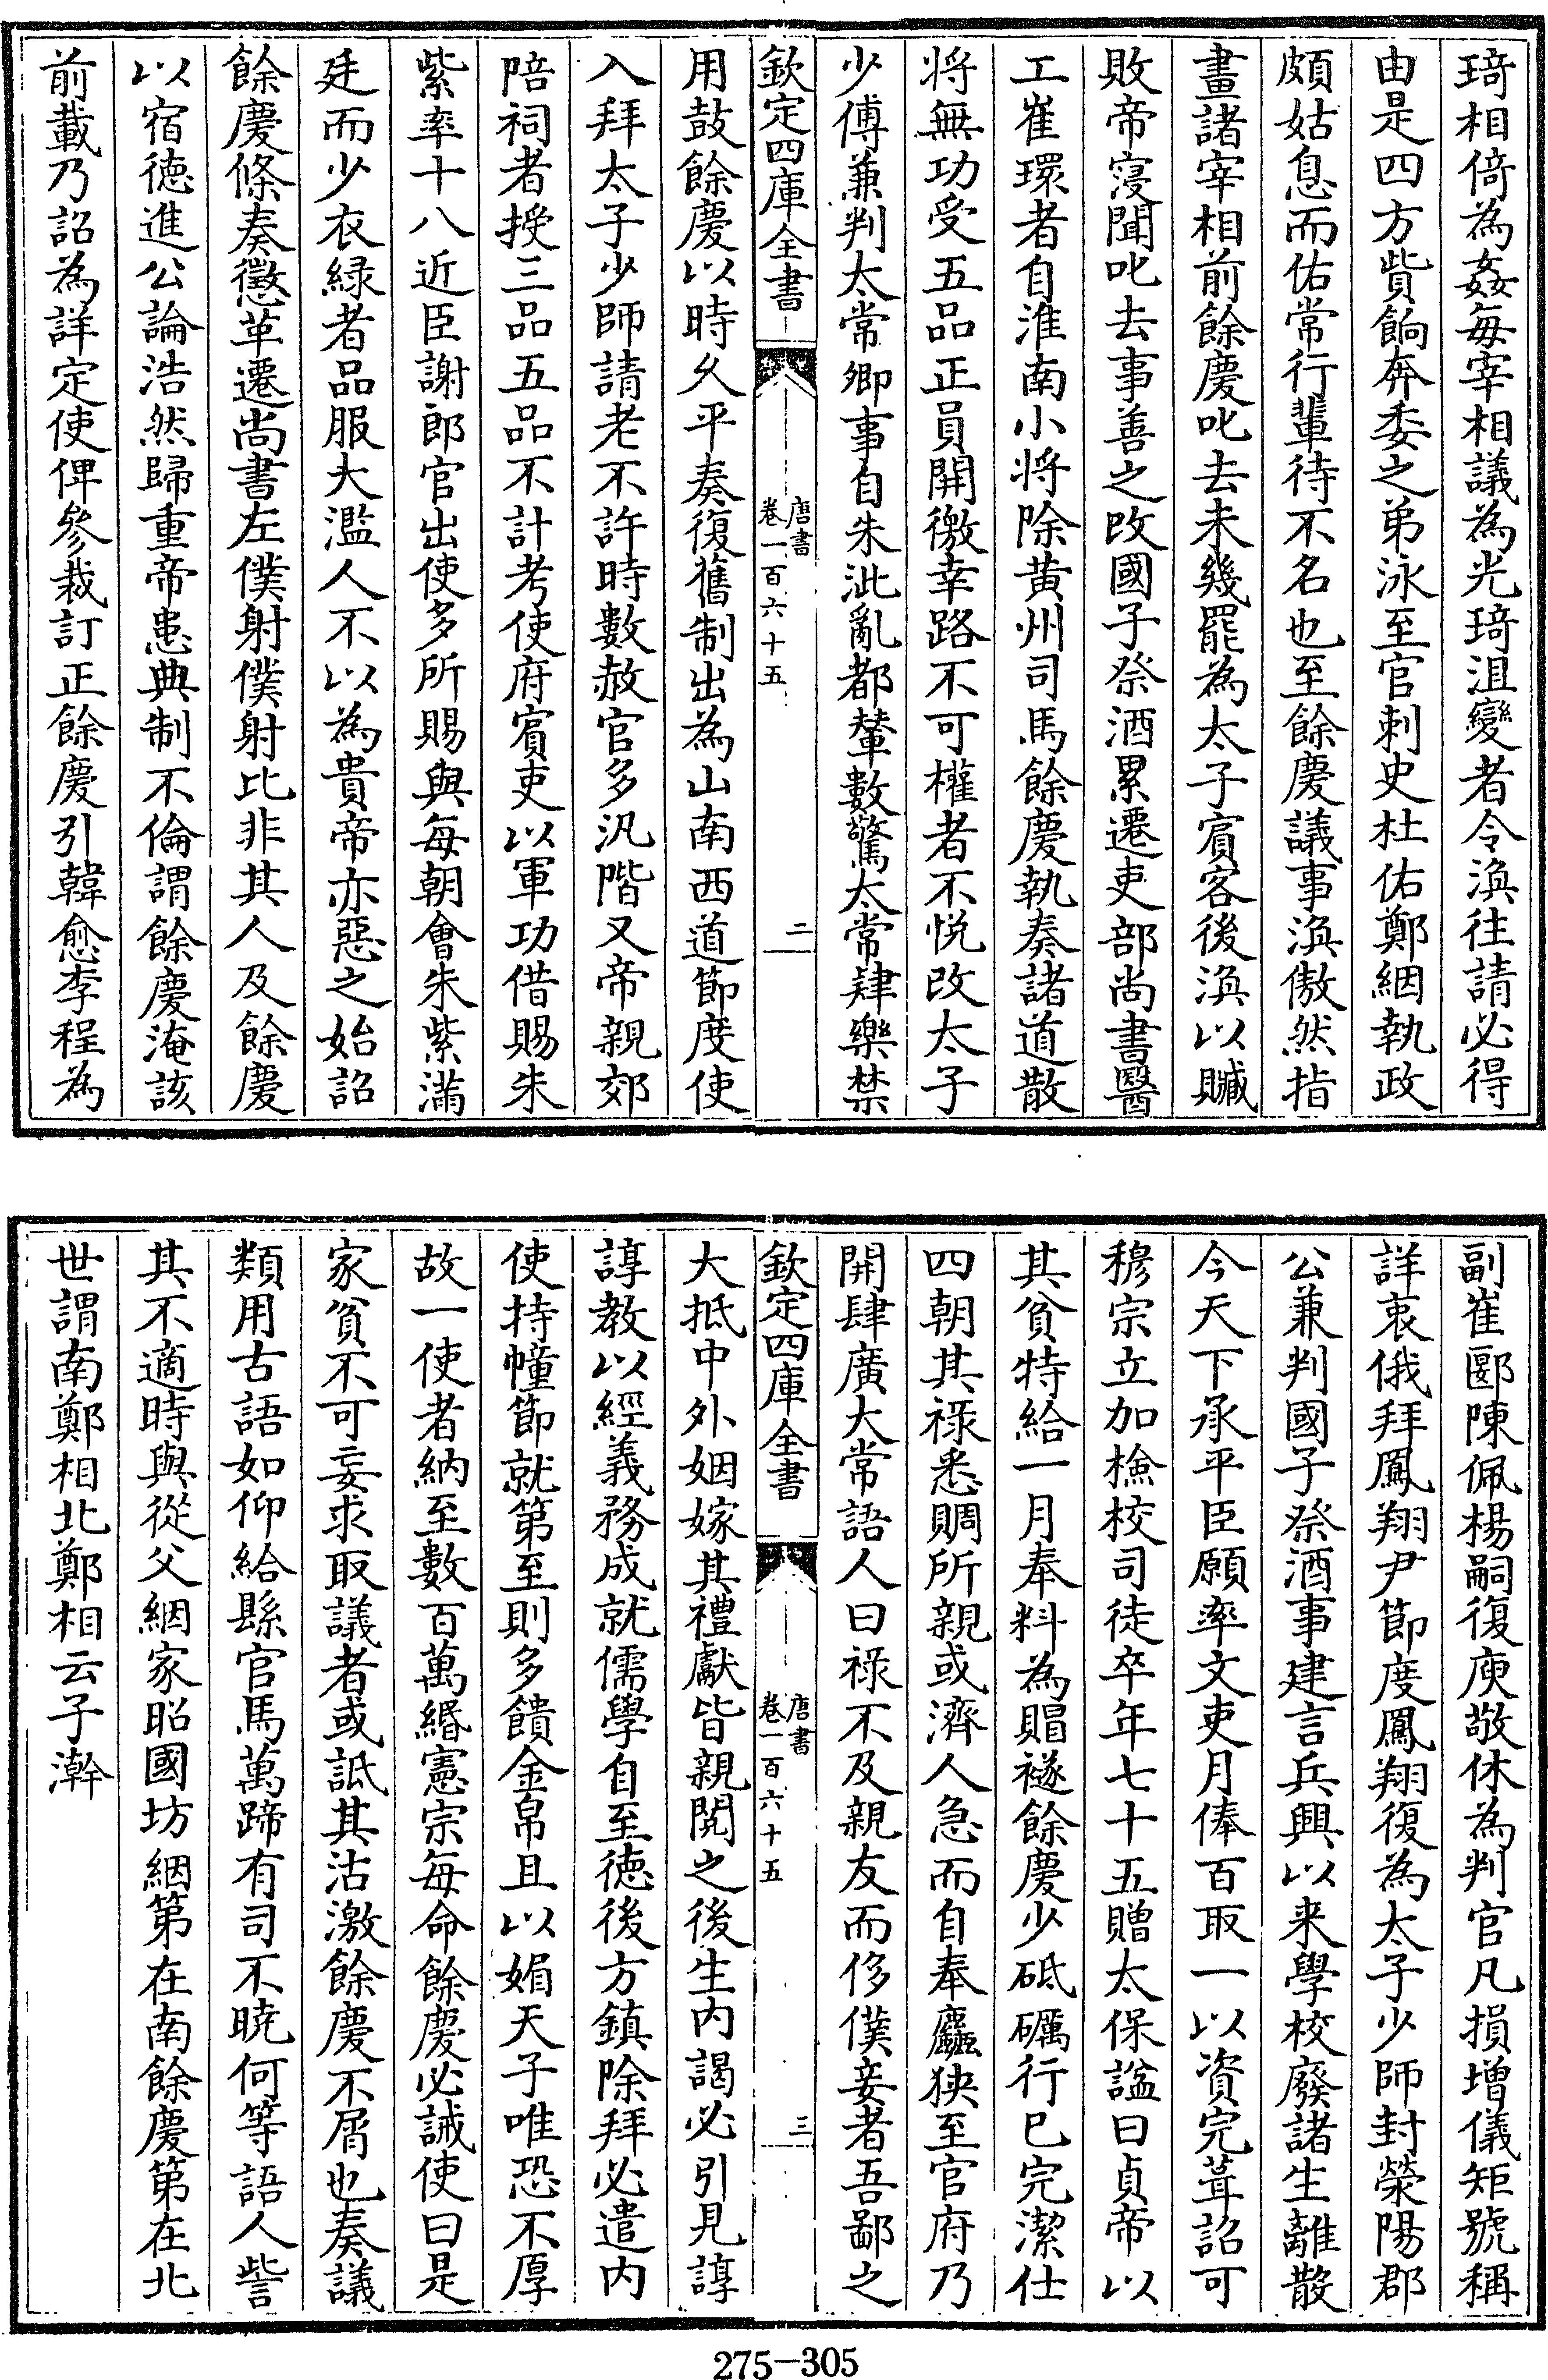 琦相倚為姦每宰相議為光琦沮變者令渙往請必得
由是四方貲餉奔委之弟泳至官刺史杜佑鄭絪執政
頗姑息而佑常行輩待不名也至餘慶議事渙傲然指
畫諸宰相前餘慶叱去未幾罷為太子賓客後渙以贓
敗帝寖聞叱去事善之改國子祭酒累遷吏部尚書醫
工崔環者自淮南小将除黄州司馬餘慶執奏諸道散
将無功受五品正員開徼幸路不可權者不悦改太子
少傅兼判太常卿事自朱泚亂都輦數驚太常肄樂禁
欽定四庫全書
唐書
卷一百六十五
二
用鼓餘慶以時久平奏復舊制出為山南西道節度使
入拜太子少師請老不許時數赦官多汎階又帝親郊
陪祠者授三品五品不計考使府賓吏以軍功借賜朱
紫率十八近臣謝郎官出使多所賜與每朝會朱紫滿
廷而少衣緑者品服大濫人不以為貴帝亦惡之始詔
餘慶條奏懲革遷尚書左僕射僕射比非其人及餘慶
以宿徳進公論浩然歸重帝患典制不倫謂餘慶淹該
前載乃詔為詳定使俾參裁訂正餘慶引韓愈李程為
副崔郾陳佩楊嗣復庾敬休為判官凡損增儀矩號稱
詳衷俄拜鳳翔尹節度鳳翔復為太子少師封滎陽郡
公兼判國子祭酒事建言兵興以来學校廢諸生離散
今天下承平臣願率文吏月俸百取一以資完葺詔可
穆宗立加檢校司徒卒年七十五贈太保諡曰貞帝以
其貧特給一月奉料為賵襚餘慶少砥礪行已完潔仕
四朝其禄悉賙所親或濟人急而自奉麤狹至官府乃
開肆廣大常語人曰禄不及親友而侈僕妾者吾鄙之
欽定四庫全書
唐書
卷一百六十五
三
大抵中外姻嫁其禮獻皆親閱之後生内謁必引見諄
諄教以經義務成就儒學自至徳後方鎮除拜必遣内
使持幢節就第至則多饋金帛且以媚天子唯恐不厚
故一使者納至數百萬緡憲宗每命餘慶必誡使曰是
家貧不可妄求取議者或詆其沽激餘慶不屑也奏議
類用古語如仰給縣官馬萬蹄有司不曉何等語人訾
其不適時與從父絪家昭國坊絪第在南餘慶第在北
世謂南鄭相北鄭相云子澣
275-305